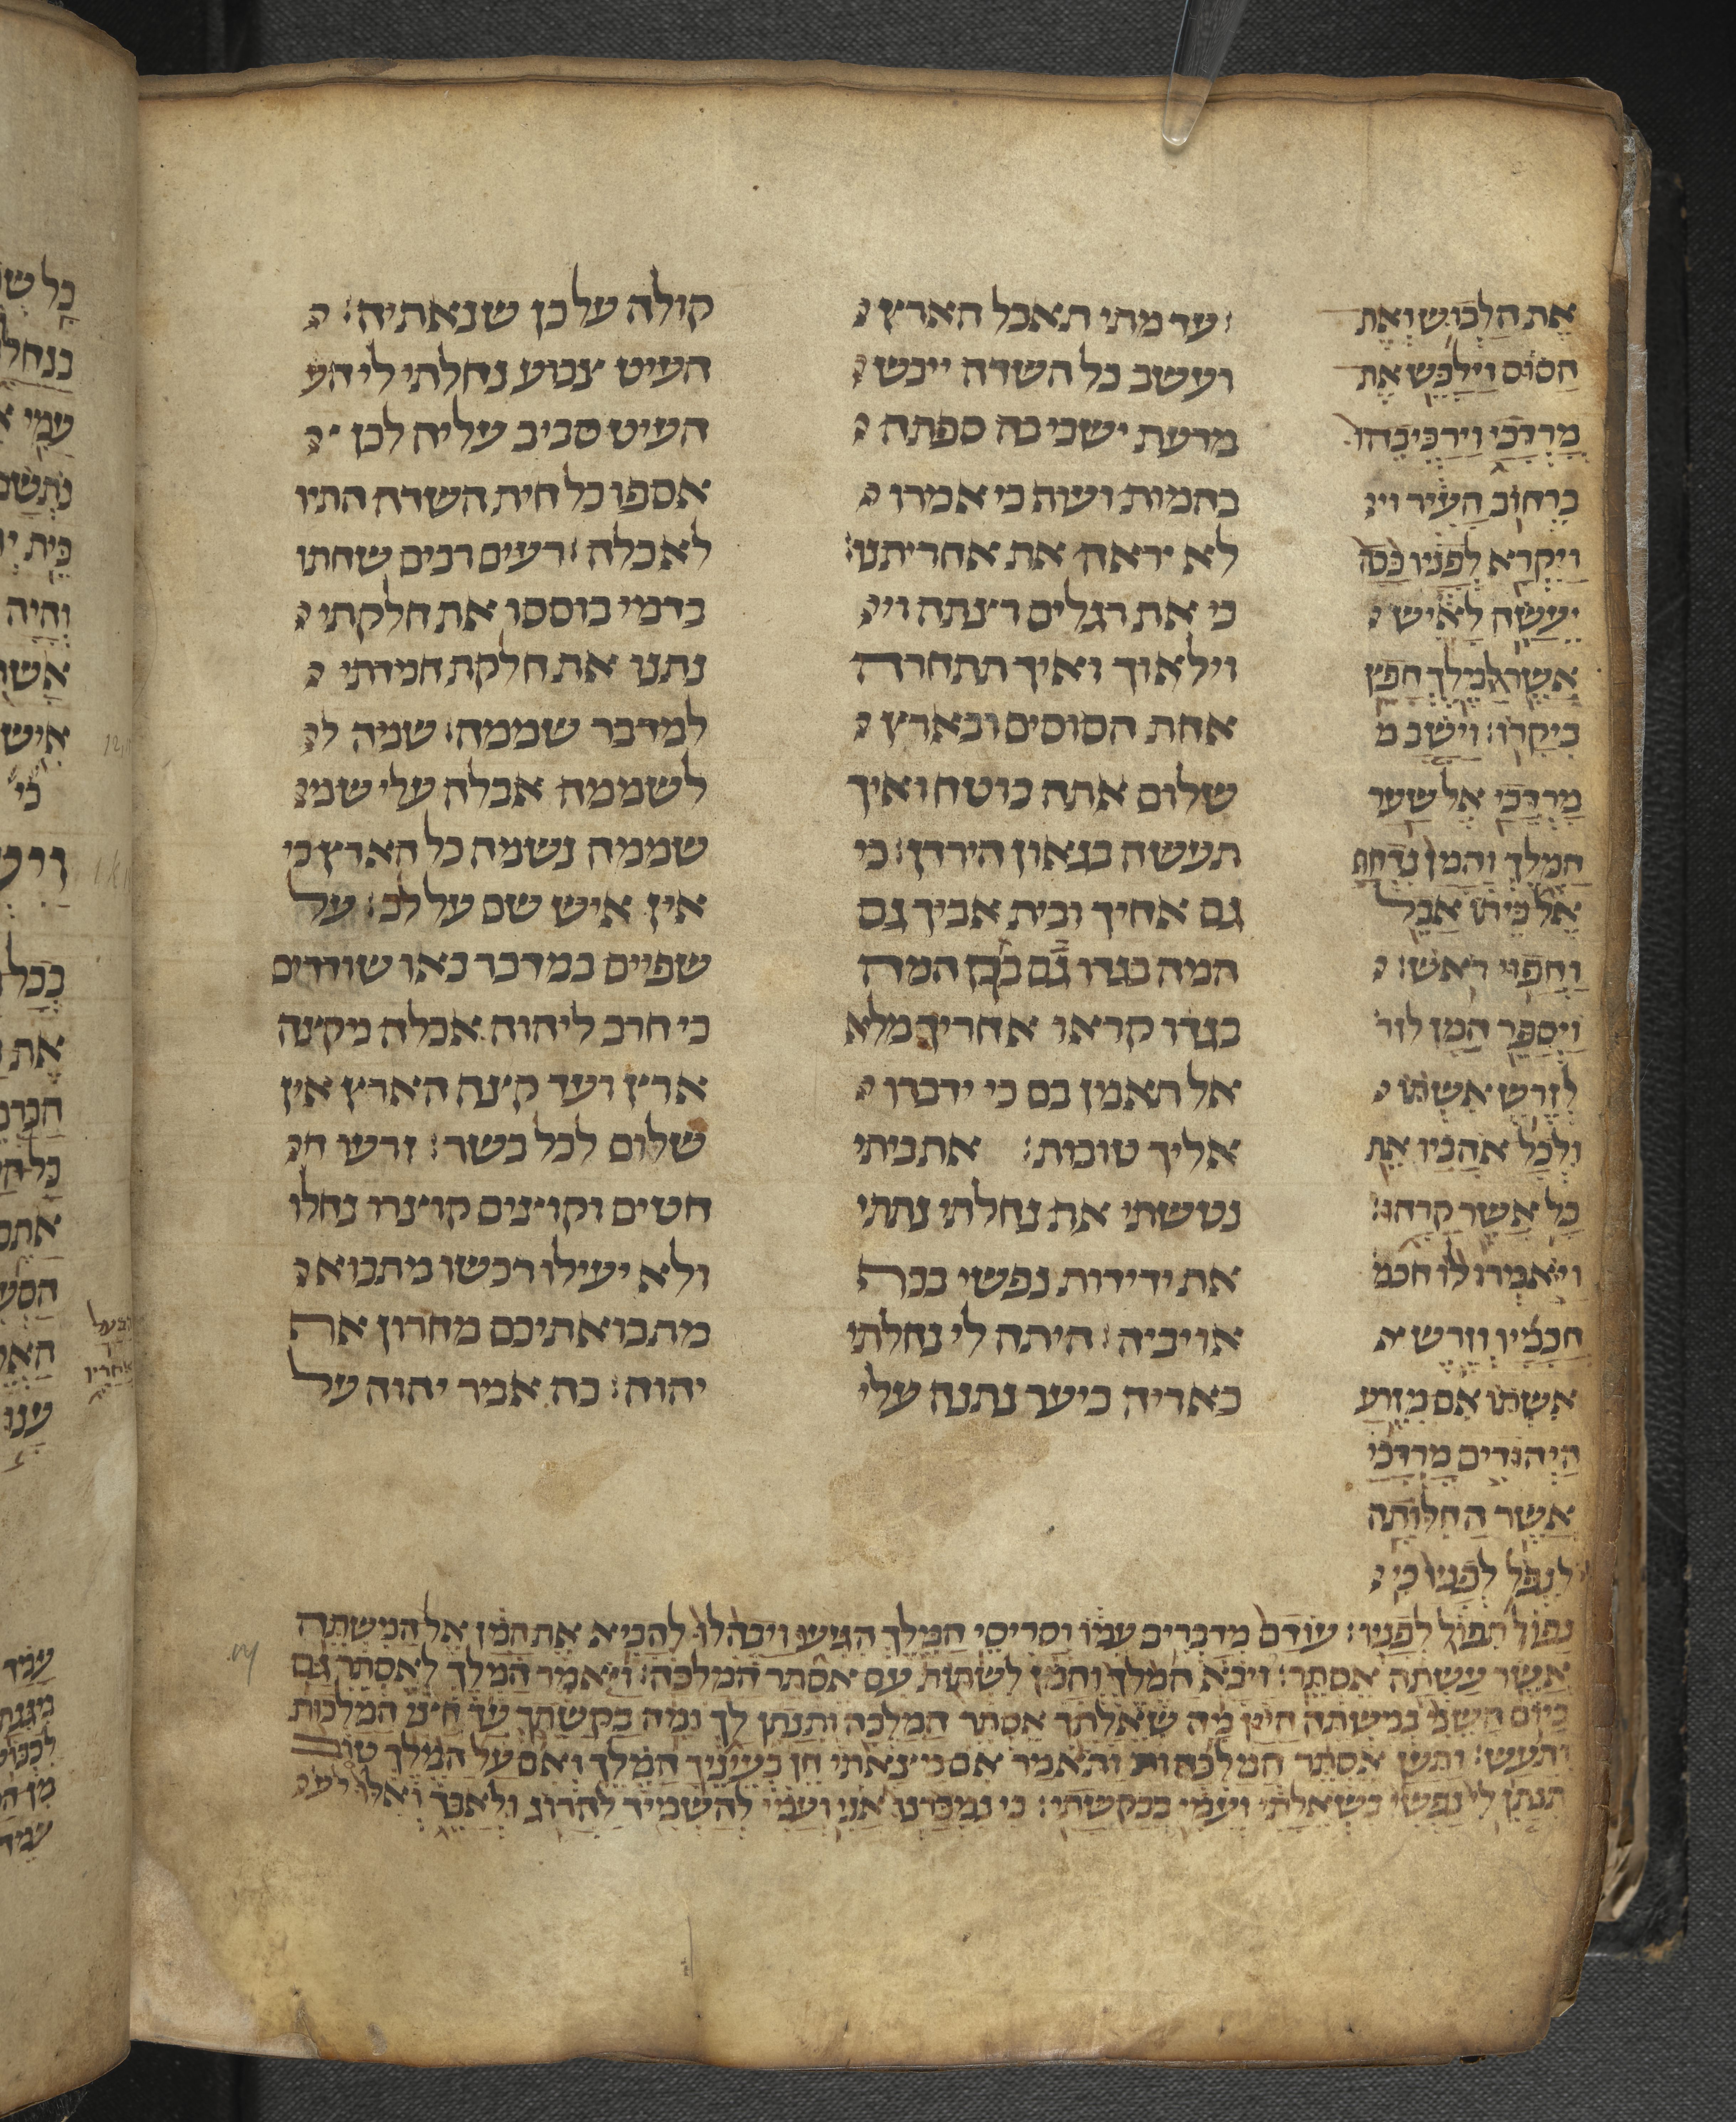 את הלבוש ואת
הסוס וילבש את
מרדכי וירכיבהו
ברחוב העיר וי
ויקרא לפניו ככה
יעשה לאיש
אשר המלך חפץ
ביקרו׃ וישב מ
מרדכי אל שער
המלך והמן נדחת
אל ביתו אבל
וחפוי ראש׃
ויספר המן לזר
לזרש אשתו
ולכל אהביו את
כל אשר קרהו׃
ויאמרו לו חכמ
חכמיו וזרש א
אשתו אם מזרע
היהודים מרדכי
אשר החלות
לנפל לפניו כי
׃ עד מתי תאבל הארץ
ועשב כל השדה ייבש
מרעת ישבי בה ספתה
בהמות ועוף כי אמרו
לא יראה את אחריתנו׃
כי את רגלים רצתה וי
וילאוך ואיך תתחרה
את הסוסים ובארץ
שלום אתה בוטח ואיך
תעשה בגאון הירדן׃ כי
גם אחיך ובית אביך גם
המה בגדו גם המה
בגדו קראו אחריך מלא
אל תאמן בם כי ידברו
אליך טובות׃ את ביתי
נטשתי את נחלתי נתתי
את ידידות נפשי בכף
אויביה׃ היתה לי נחלתי
כאריה ביער נתנה עלי
קולה על כן שנאתיה׃
העיט צבוע נחלתי לי הע
העיט סביב עליה לכו
אספו כל חית השדה התיו
לאכלה׃ רעים רבים שחתו
כרמי בוססו את חלקתי
נתנו את חלקת חמדתי
למדבר שממה׃ שמה ל
לשממה אבלה עלי שמ
שממה נשמה כל הארץ כי
אין איש שם על לב׃ על
שפיים במדבר באו שודדים
כי חרב ליהוה אכלה מקצה
ארץ ועד קצה הארץ אין
שלום לכל בשר׃ זרעו ח
חטים וקוצים קוצרו נחלו
ולא יעילו ובשו מתבוא
מתבואתיכם מחרון אף
יהוה׃ כה אמר יהוה על
נפול תפול לפניו׃ עודם מדברים עמו וסריסי המלך הגיעו ויבהלו להביא את המן אל המשתה
אשר עשתה אסתר׃ ויבא המלך והמן לשתות עם אסתר המלכה׃ ויאמר המלך לאסתר גם
ביום השני במשתה היין מה שאלתך אסתר המלכה ותנתן לך ומה בקשתך עד חצי המלכות
ותעש׃ ותען אסתר המלכה ותאמר אם מצאתי חן בעיניך המלך ואם על המלך טוב
תנתן לי נפשי בשאלתי ועמי בבקשתי׃ כי נמכרנו אני ועמי להשמיד להרוג ולאבד ואלו